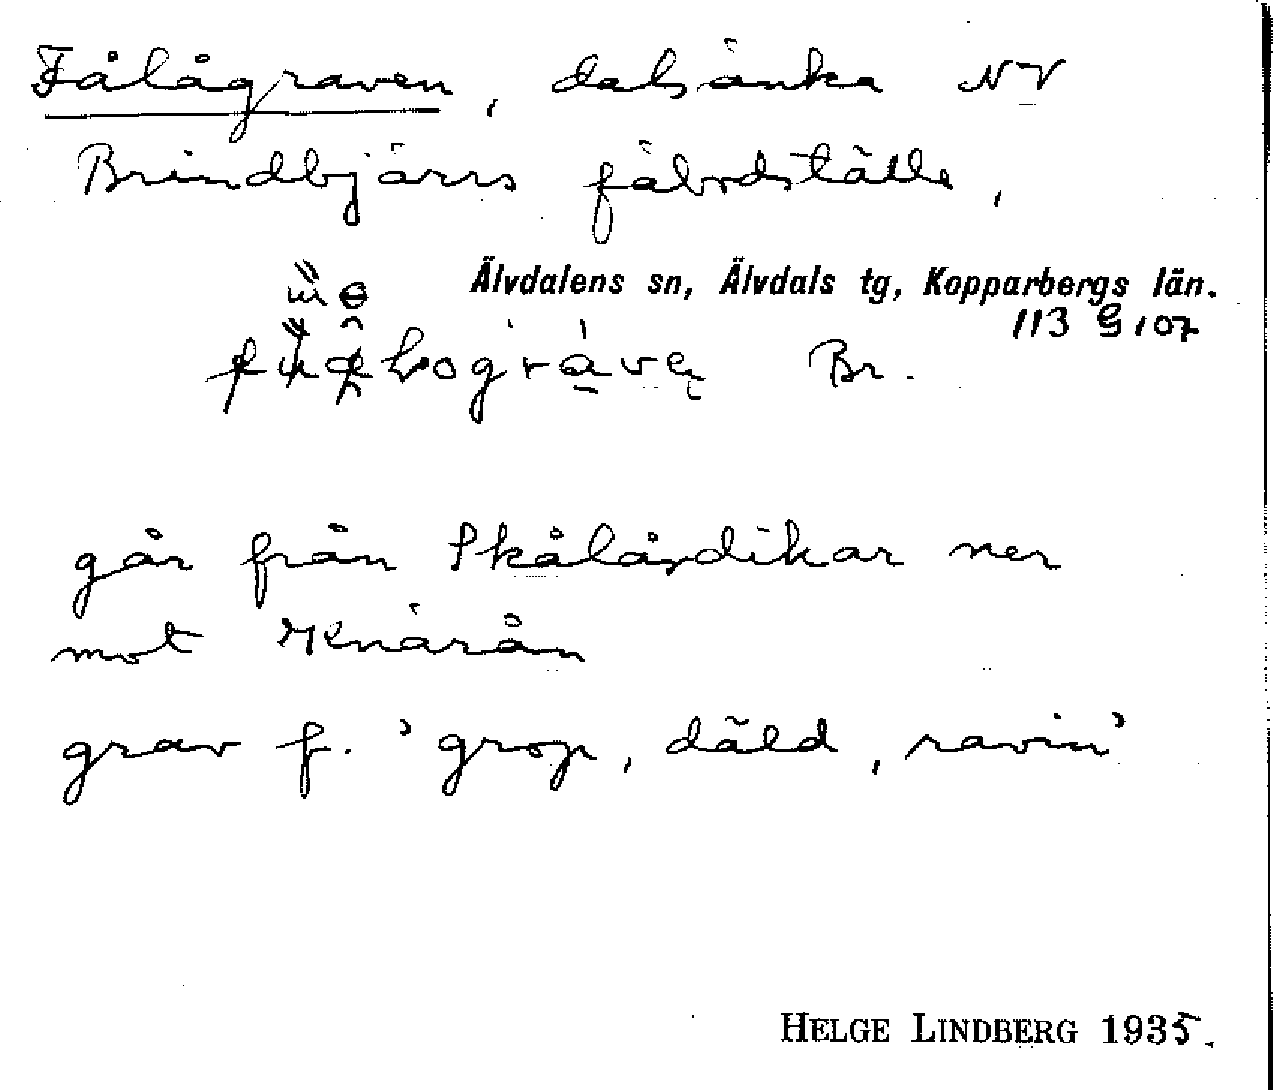 Fålågraven, dalsänka NV
Brindbjärs fäbodställe,
Älvdalens sn, Älvdals tg, Kopparbergs län.
113 G 107
Br.
går från Skålåsdikar ner
mot Knärån
grav f. 'grop, däld, ravin'
HELGE LINDBERG 1935.